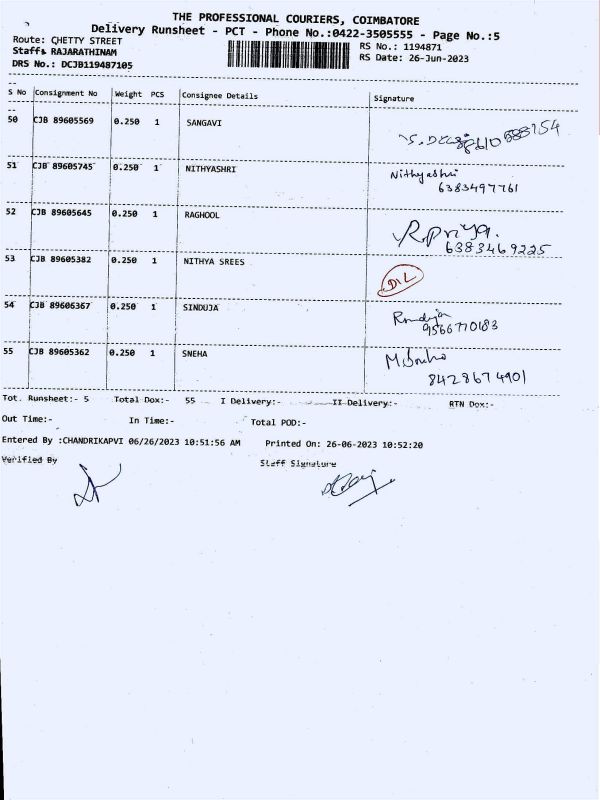 THE PROFESSIONAL COURIERS, COIMBATORE
Delivery Runsheet - PCT - Phone No.:0422-3505555 - Page No.:5
Route: CHETTY STREET
RS No.: 1194871
Staff: RAJARATHINAM
RS Date: 26-Jun-2023
DRS No.: DCJB119487105
S No Consignment No Weight PCS Consignee Details Signature
50 CJB 89605569 0.250 1 SANGAVI
51 CJB 89605745 0.250 1 NITHYASHRI Nithyashri
6383497761
52 CJB 89605645 0.250 1 RAGHOOL R.priya.
6383469225
53 CJB 89605382 0.250 1 NITHYA SREES D/L
54 CJB 89606367 0.250 1 SINDUJA
9566770183
55 CJB 89605362 0.250 1 SNEHA
8428674901
Tot. Runsheet:- 5 Total Dox:- 55 I Delivery:- II Delivery:- RTN Dox:-
Out Time:- In Time:- Total POD:-
Entered By :CHANDRIKAPVI 06/26/2023 10:51:56 AM Printed On: 26-06-2023 10:52:20
Verified By Staff Signature